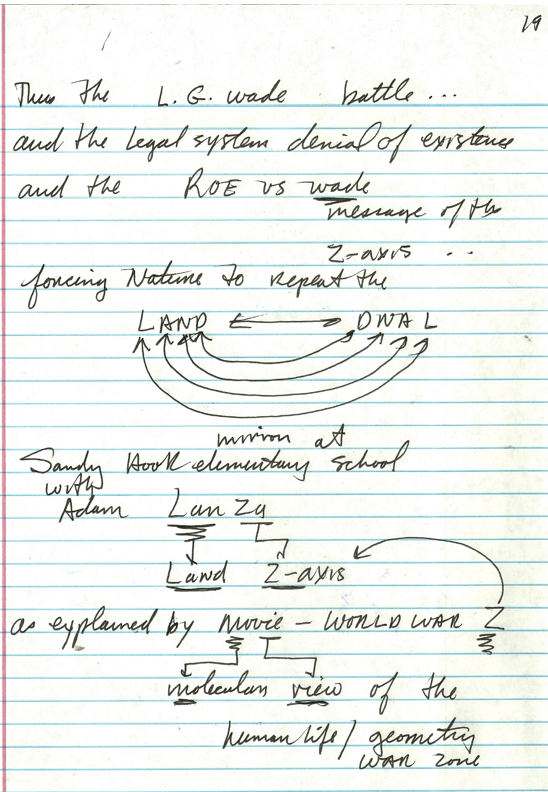 19
Thus the L.G. wade battle ...
and the legal system denial of existence
and the ROE vs wade
message of the
Z-axis ..
forcing Nature to repeat the
LAND DNAL
mirror at
Sandy Hook elementary school
with
Adam Lan Za
Land Z-axis
as explained by movie - WORLD WAR Z
molecular view of the
human life / geometry
WAR zone